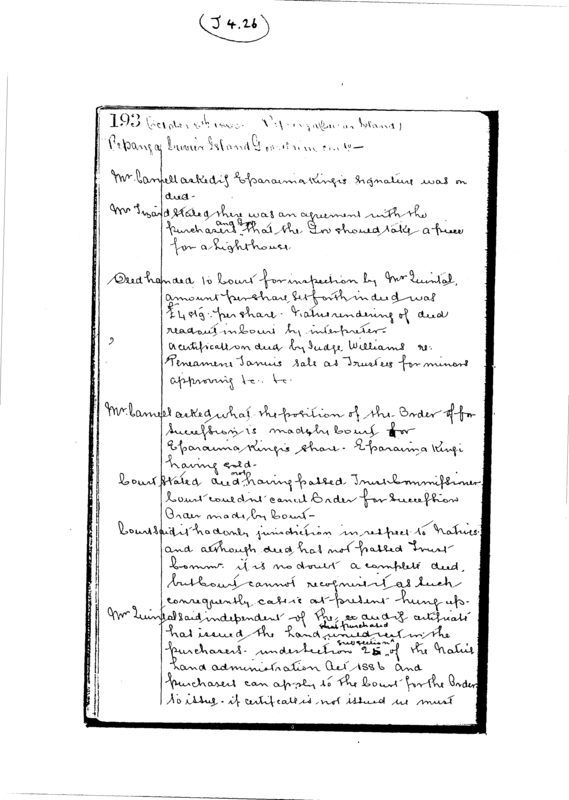 J 4.26
193 October 5th Island)
Repanga Cuvier Island
Mr Camell asked if Eparaima Kingi's signature was on
deed -
Mr stated there was an agreement with the
purchasers and Gov that the Gov should take a piece
for a lighthouse
Deed handed to Court for inspection by Mr Quintal,
amount per share set forth in deed was
per share. Native rendering of deed
read out in Court by interpreter
a certificate on deed by Judge Williams re:
sale as Trustees for minors
approving &c. &c.
Mr. Camell asked what the position of the Order of for
Succession is made by Court for
Eparaima Kingi's share. Eparaima Kingi
having sold -
Court stated deed not having passed Trust Commissioner
Court couldnt cancel Order for Succession
Order made by Court -
Court said it had only jurisdiction in respect to Natives
and although deed has not passed Trust
Commr. it is no doubt a complete deed,
but Court cannot recognise it as such
consequently case is at present hung up.
Mr Quintal said independent of the and if certificate
has issued the land purchased in the
purchasers under section 25 subsection of the Native
Land administration Act 1886 and
purchasers can apply to the Court for the Order
to issue. if certificate is not issued we must